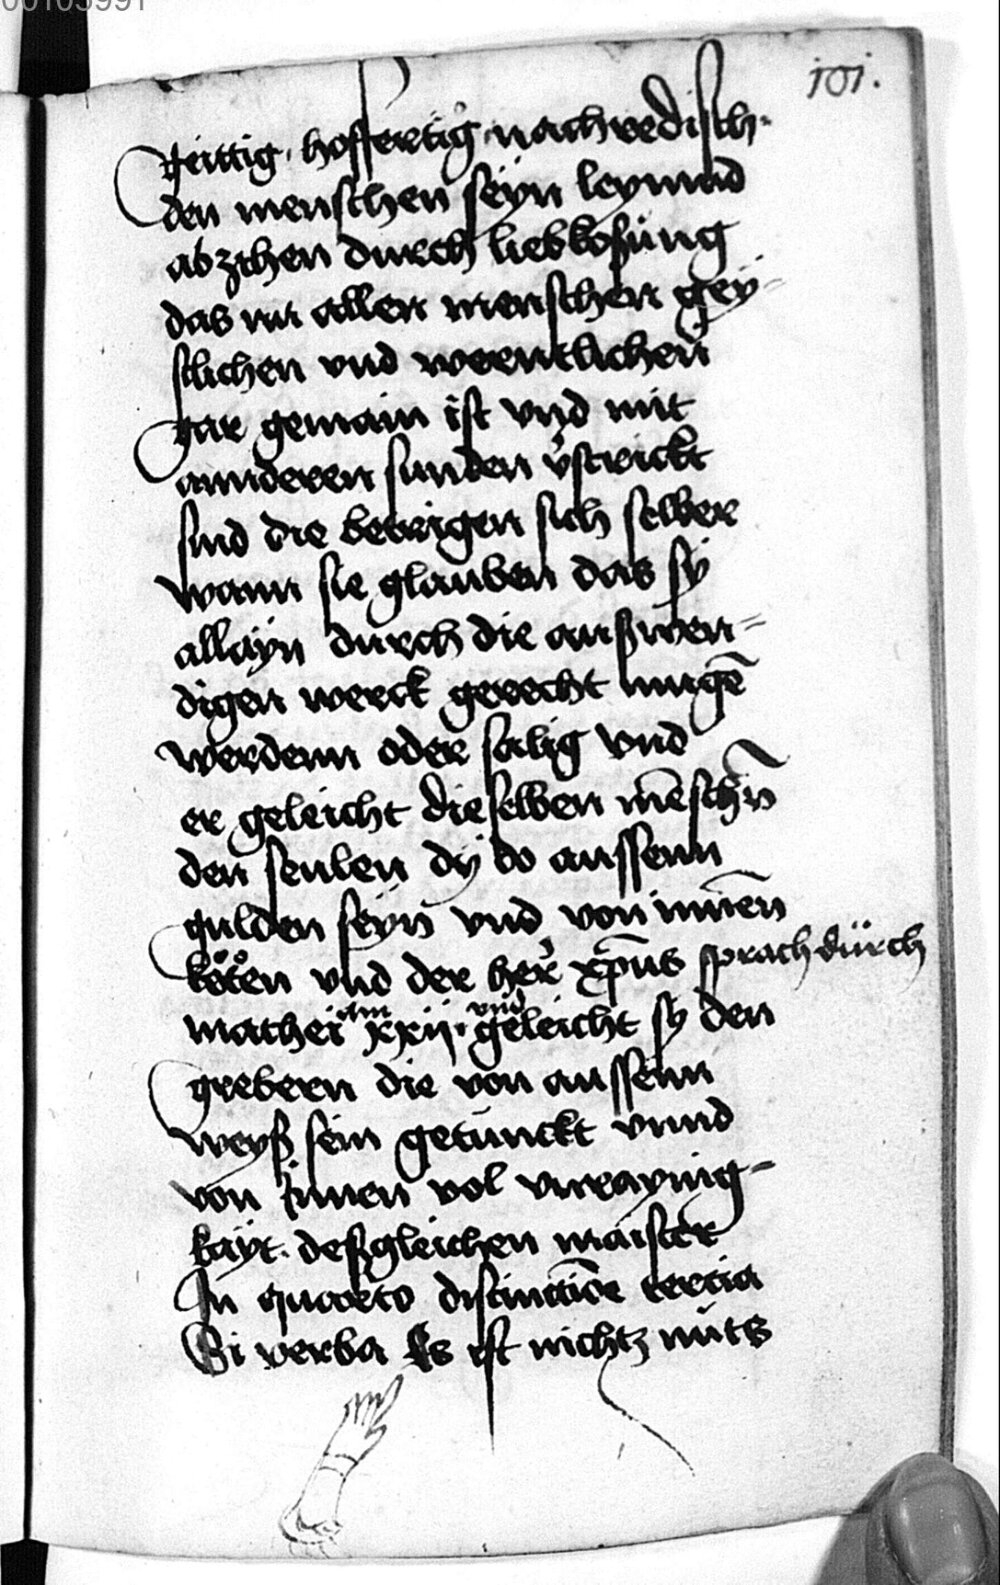 00103991
101.
geittig hoffertig nachredisch
den menschen seyn leymad
abzihen durch liebkosung
das nu allen menschen gey-
stlichen vnd werntlichen
gar gemain ist vnd mit
annderen sunden v̾strickt
sind die betrigen sich selber
wann sie glauben das sy
allayn durch die außwen-
digen werck gerecht mugē
werdenn oder sälig vnd
er geleicht die selben mēschn̄
den seulen dy do aussenn
gulden seyn vnd von innen
köten vnd der her xp̄us sprach dürch
mathei am xxiij. vnd geleicht sy den
grebern die von aussenn
weyß sein getünckt vnnd
von Innen vol vnrayning-
kayt. deßgleichen maister
In quarto distinctiōe tertia
Si verba Es ist nichtz nuts